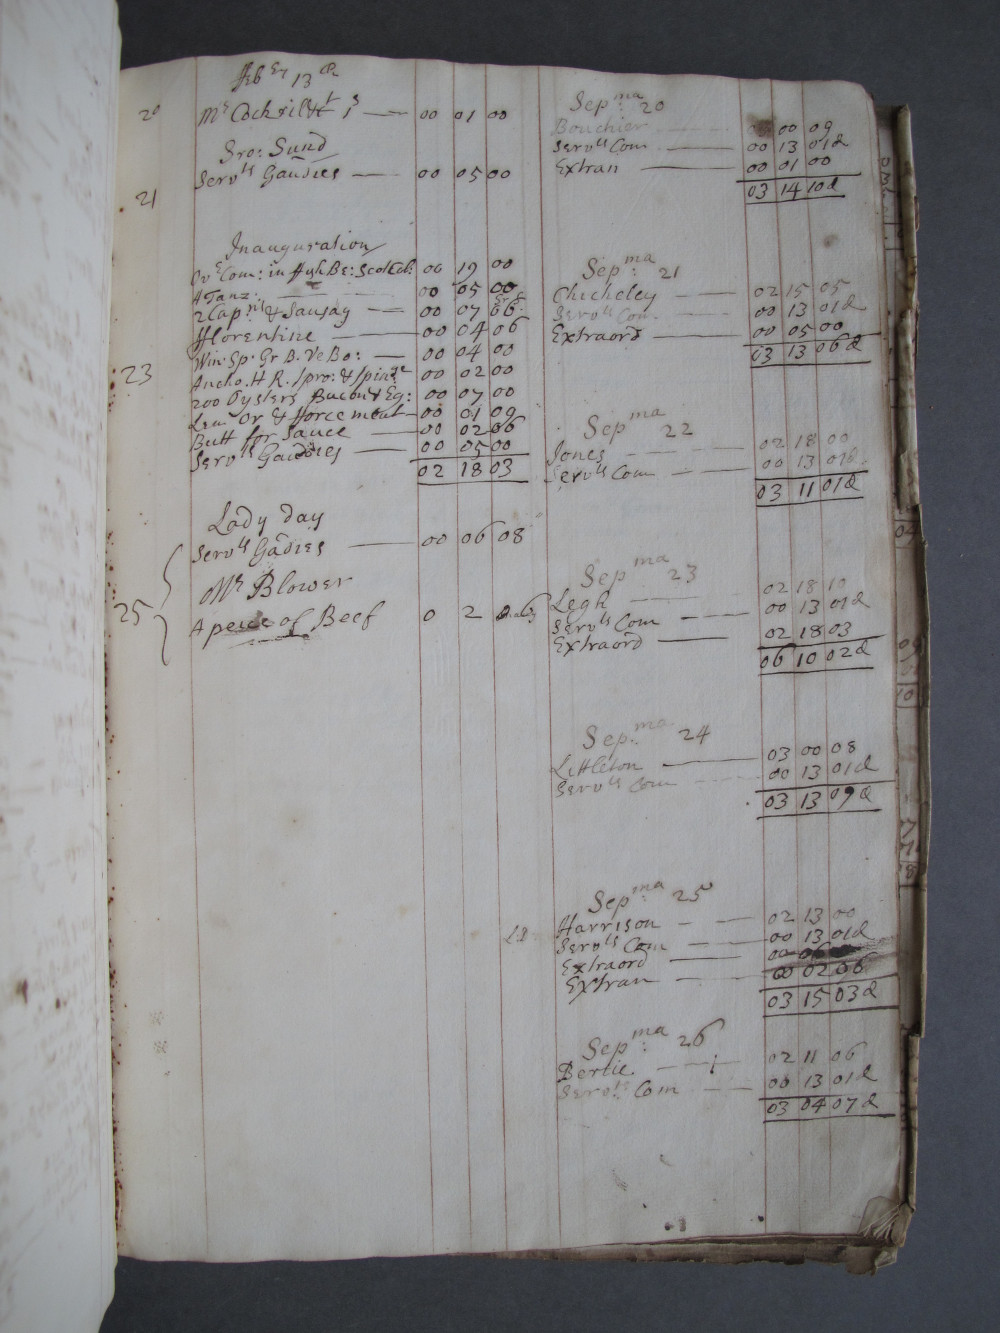 Feb Er 13 th
20 Mr Cockril 1 s — 00 01 00
Bro: Sund
Servts Gaudies — 00 05 00
21
Inauguration
Ov Com: in Hyh Be: Scotch: 00 19 00
A Tanz: — 00 05 00
2 Capns & Sausag — 00 07 06
Florentine — 00 04 06
23 Win. Sp. Gr B. Ve Bo: — 00 04 00
Ancho. H R. spro: & spinge 00 02 00
200 Oysters Bacon & Eg: 00 07 00
Lem Or & fforce meat — 00 01 09
Butt for Sauce — 00 02 06
Servts Gaudies — 00 05 00
02 18 03
Lady day
Servts Gadies — 00 06 08
25 Mr Blower
A peice of Beef 0 2 6
Sepma: 20
Bouchier — 00 09
Servts Com — 00 13 01d
Extran — 00 01 00
03 14 10d
Sepma: 21
Chicheley — 02 15 05
Servts Com — 00 13 01d
Extraord — 00 05 00
03 13 06d
Sepma 22
Jones — 02 18 00
Servts Com — 00 13 01d
03 11 01d
Sepma 23
Legh — 02 18 10
Servts Com — 00 13 01d
Extraord — 02 18 03
06 10 02d
Sep:ma 24
Littleton — 03 00 08
Servts Com — 00 13 01d
03 13 09d
Sepma: 25
Harrison — 02 13 00
Servts Com — 00 13 01d
Extraord — 00 06
Extran — 00 02 06
03 15 03d
Sepma: 26
Bertie — 02 11 06
Servts Com — 00 13 01d
03 04 07d